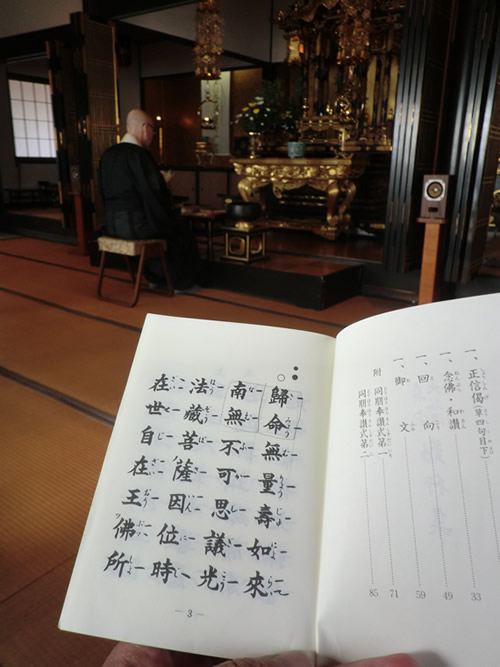 一、正信偈（草四句目下） 33
一、念佛・和讃 49
一、回向 59
一、御文
附 同朋奉讃式第一 71
同朋奉讃式第二 85
歸命無量壽如來
南無不可思議光
法藏菩薩因位時
在世自在王佛所
3